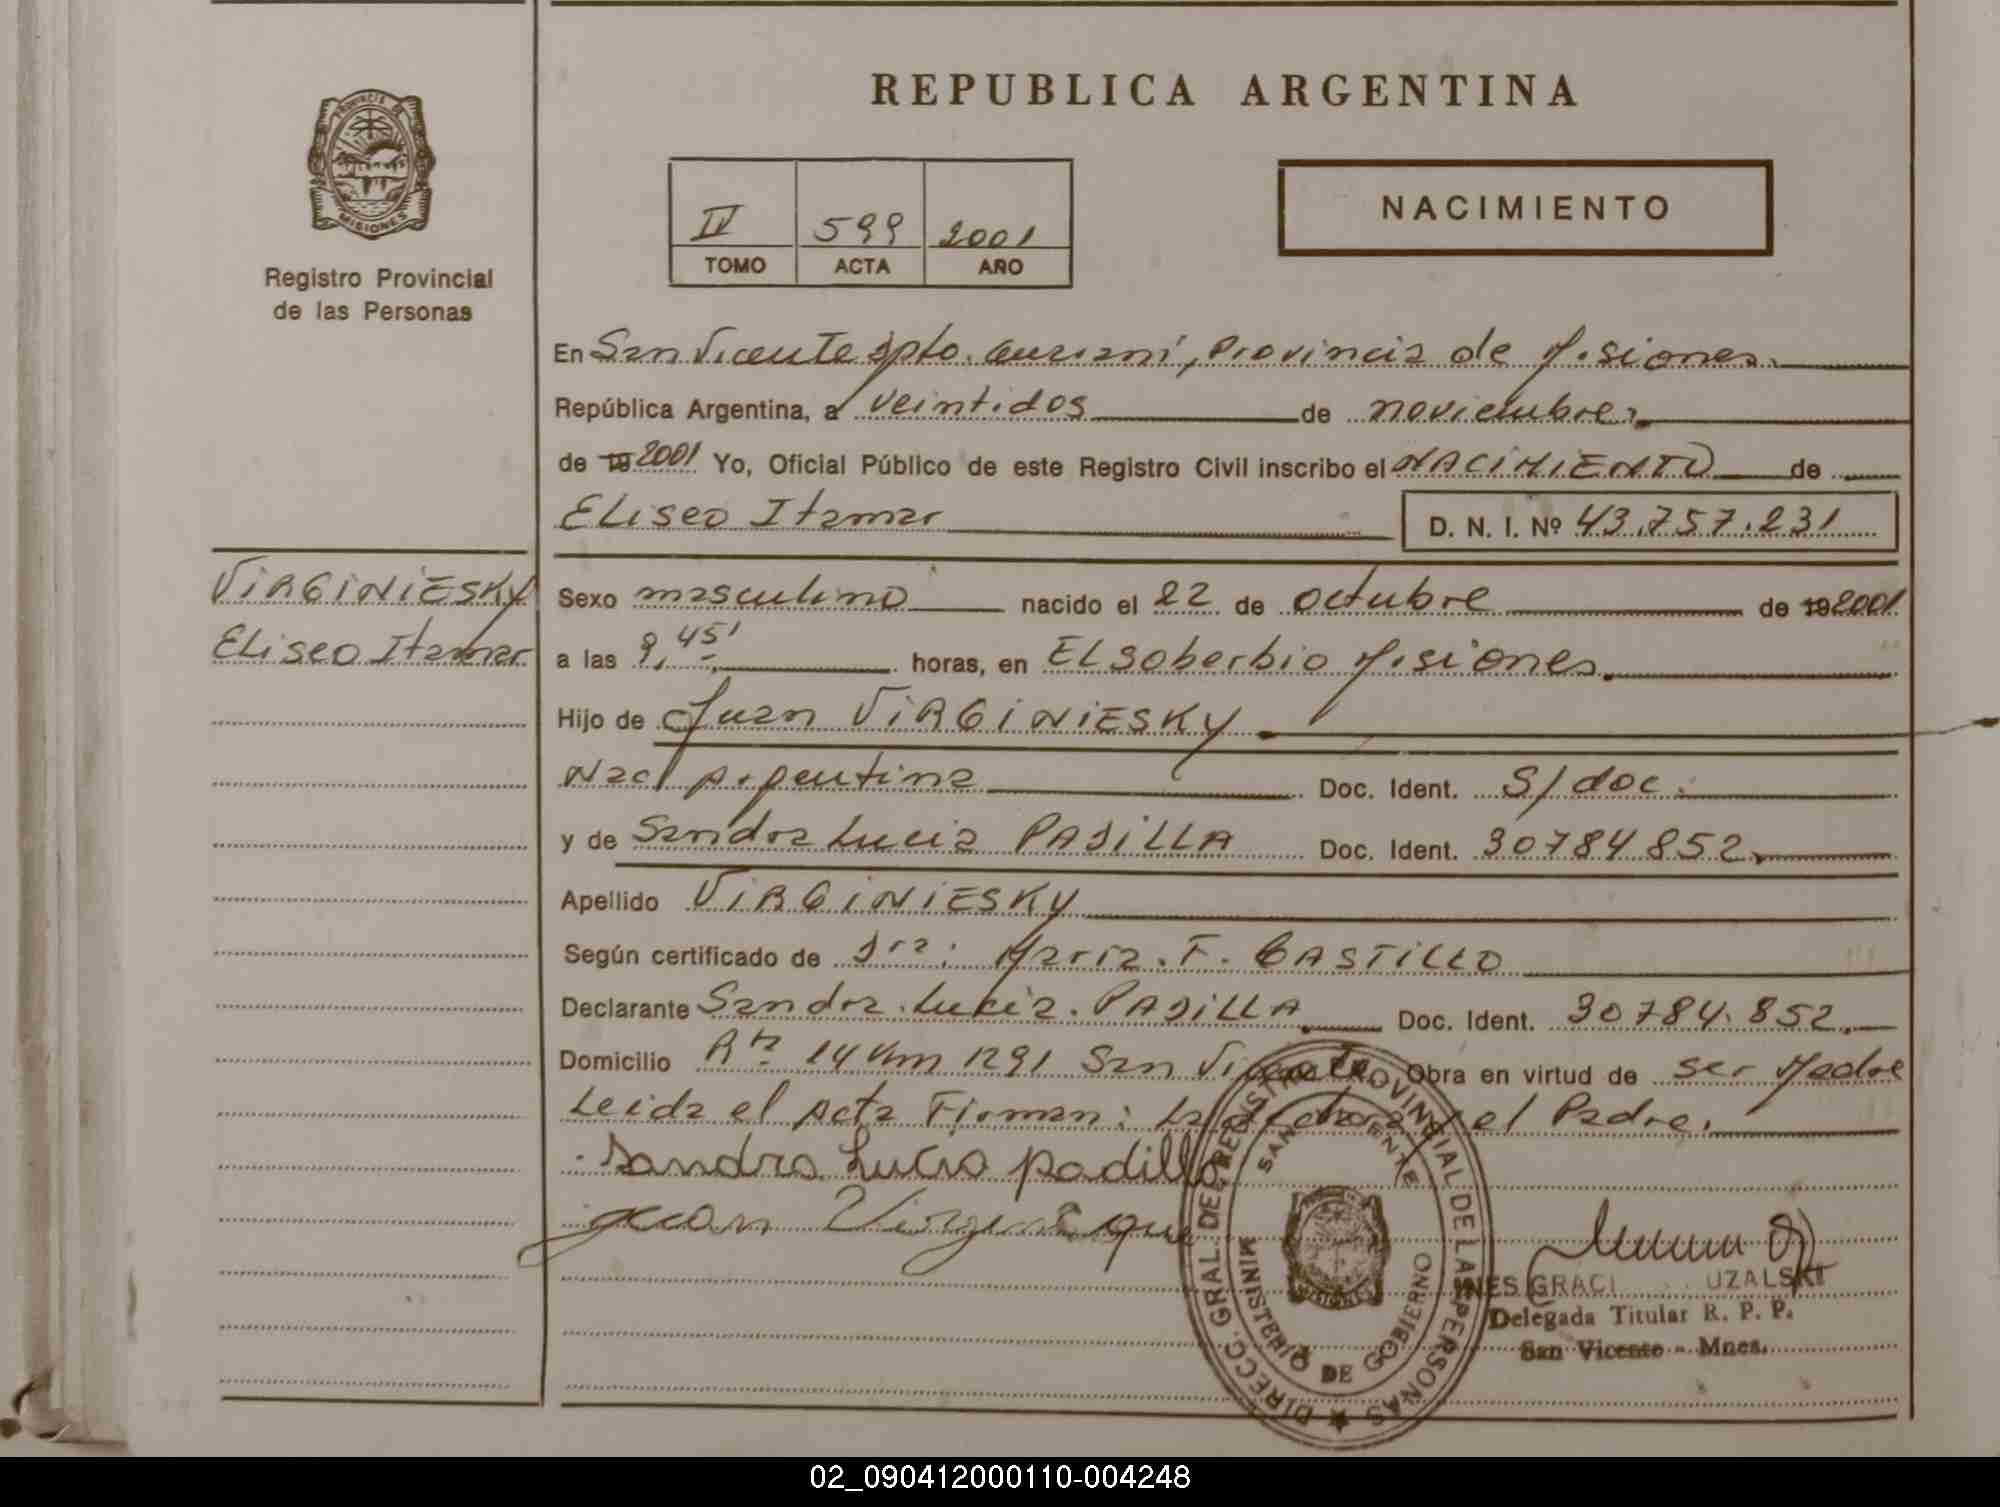 REPUBLICA ARGENTINA
PROVINCIA DE
MISIONES
Registro Provincial
de las Personas
IV 599 2001
TOMO ACTA AÑO
NACIMIENTO
En San Vicente dpto. Guaraní, Provincia de Misiones.
República Argentina, a veintidos de noviembre,
de 19 2001 Yo, Oficial Público de este Registro Civil inscribo el NACIMIENTO de
Eliseo Itamar D. N. I. Nº 43.757.231
VIRGINIESKY
Eliseo Itamar
Sexo masculino nacido el 22 de octubre de 19 2001
a las 9,45' horas, en El soberbio Misiones.
Hijo de Juan VIRGINIESKY
Nac/ Argentina Doc. Ident. S/doc.
y de Sandra Lucia PADILLA Doc. Ident. 30784852.
Apellido VIRGINIESKY
Según certificado de Dra. Maria. F. CASTILLO
Declarante Sandra. Lucia. PADILLA Doc. Ident. 30784.852.
Domicilio Rta 14 Km 1291 San Vicente Obra en virtud de ser Madre
Leida el Acta Firman: La y el Padre.
Sandra Lucia padilla
juan
DIRECC. GRAL. DEL REGISTRO PROVINCIAL DE LAS PERSONAS
SAN VICENTE
MISIONES
MINISTERIO DE GOBIERNO
INES GRACI UZALSKI
Delegada Titular R. P. P.
San Vicente - Mnes.
02_090412000110-004248